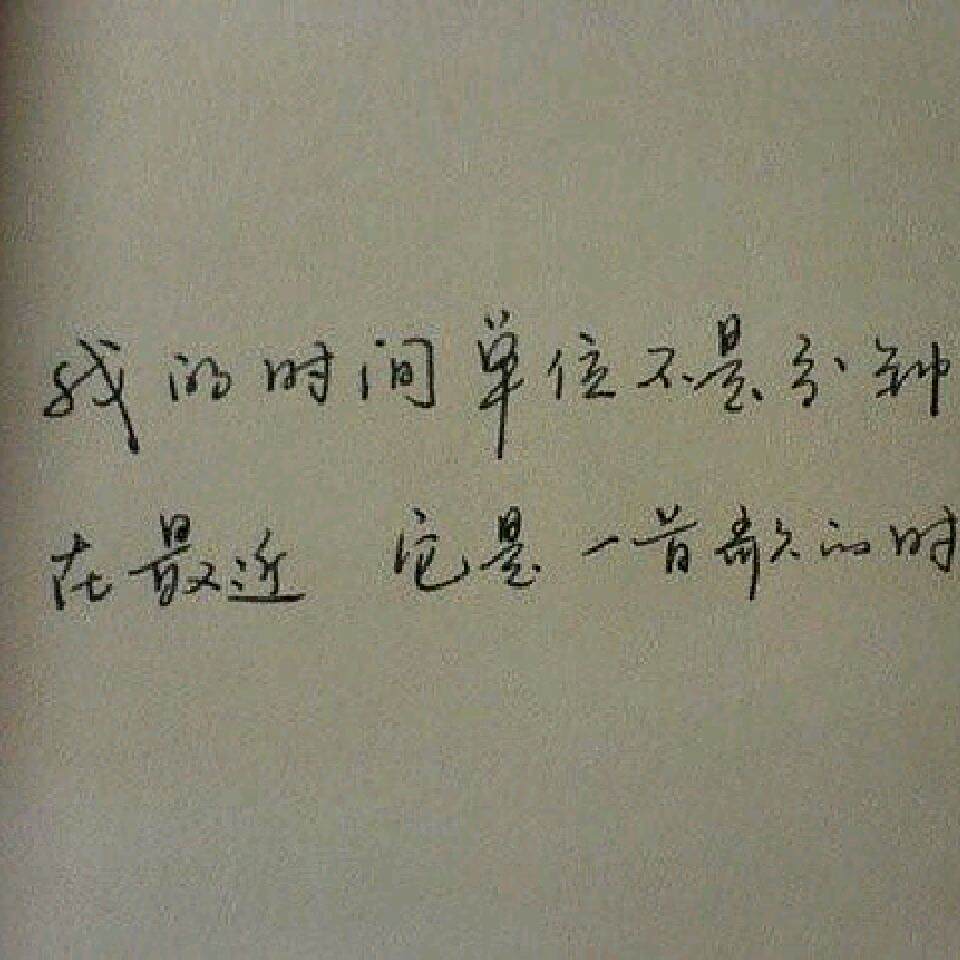 我的时间单位不是分钟
在最近 它是一首歌的时